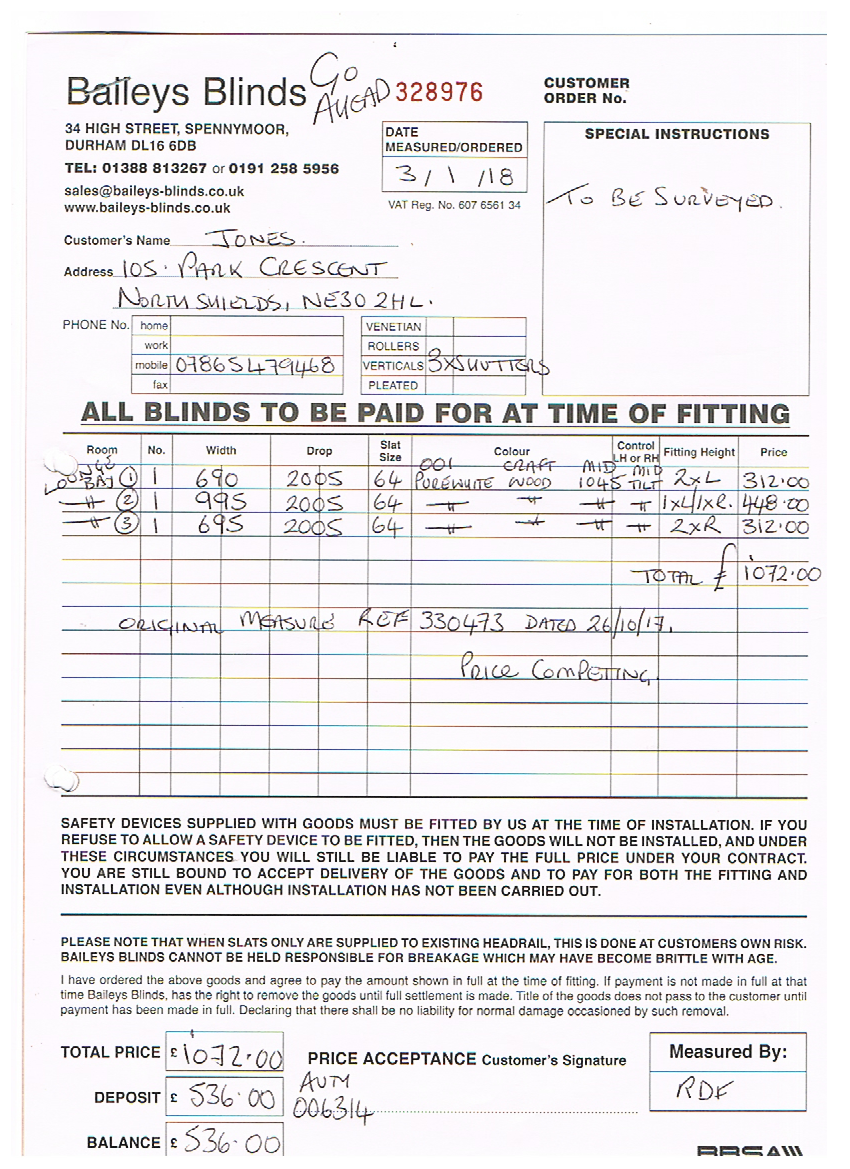 Baileys Blinds GO AHEAD 328976
CUSTOMER ORDER No.
34 HIGH STREET, SPENNYMOOR,
DURHAM DL16 6DB
TEL: 01388 813267 or 0191 258 5956
sales@baileys-blinds.co.uk
www.baileys-blinds.co.uk
DATE
MEASURED/ORDERED
3/1/18
VAT Reg. No. 607 6561 34
SPECIAL INSTRUCTIONS
TO BE SURVEYED.
Customer's Name JONES.
Address 105. PARK CRESCENT
NORTH SHIELDS, NE30 2HL.
PHONE No. home
work
mobile 07865479468
fax
VENETIAN
ROLLERS
VERTICALS 3XSHUTTERS
PLEATED
ALL BLINDS TO BE PAID FOR AT TIME OF FITTING
Room No. Width Drop Slat Size Colour Control LH or RH Fitting Height Price
LOUNGE BAY 1 1 690 2005 64 001 PUREWHITE CRAFT WOOD MID 1045 MID TILT 2xL 312.00
-"- 2 1 995 2005 64 -"- -"- -"- -"- 1xL/1xR. 448.00
-"- 3 1 695 2005 64 -"- -"- -"- -"- 2xR 312.00
TOTAL £ 1072.00
ORIGINAL MEASURE REF 330473 DATED 26/10/17.
PRICE COMPETING.
SAFETY DEVICES SUPPLIED WITH GOODS MUST BE FITTED BY US AT THE TIME OF INSTALLATION. IF YOU
REFUSE TO ALLOW A SAFETY DEVICE TO BE FITTED, THEN THE GOODS WILL NOT BE INSTALLED, AND UNDER
THESE CIRCUMSTANCES YOU WILL STILL BE LIABLE TO PAY THE FULL PRICE UNDER YOUR CONTRACT.
YOU ARE STILL BOUND TO ACCEPT DELIVERY OF THE GOODS AND TO PAY FOR BOTH THE FITTING AND
INSTALLATION EVEN ALTHOUGH INSTALLATION HAS NOT BEEN CARRIED OUT.
PLEASE NOTE THAT WHEN SLATS ONLY ARE SUPPLIED TO EXISTING HEADRAIL, THIS IS DONE AT CUSTOMERS OWN RISK.
BAILEYS BLINDS CANNOT BE HELD RESPONSIBLE FOR BREAKAGE WHICH MAY HAVE BECOME BRITTLE WITH AGE.
I have ordered the above goods and agree to pay the amount shown in full at the time of fitting. If payment is not made in full at that
time Baileys Blinds, has the right to remove the goods until full settlement is made. Title of the goods does not pass to the customer until
payment has been made in full. Declaring that there shall be no liability for normal damage occasioned by such removal.
TOTAL PRICE £ 1072.00
PRICE ACCEPTANCE Customer's Signature
Measured By:
RDF
DEPOSIT £ 536.00
AUTH
006314
BALANCE £ 536.00